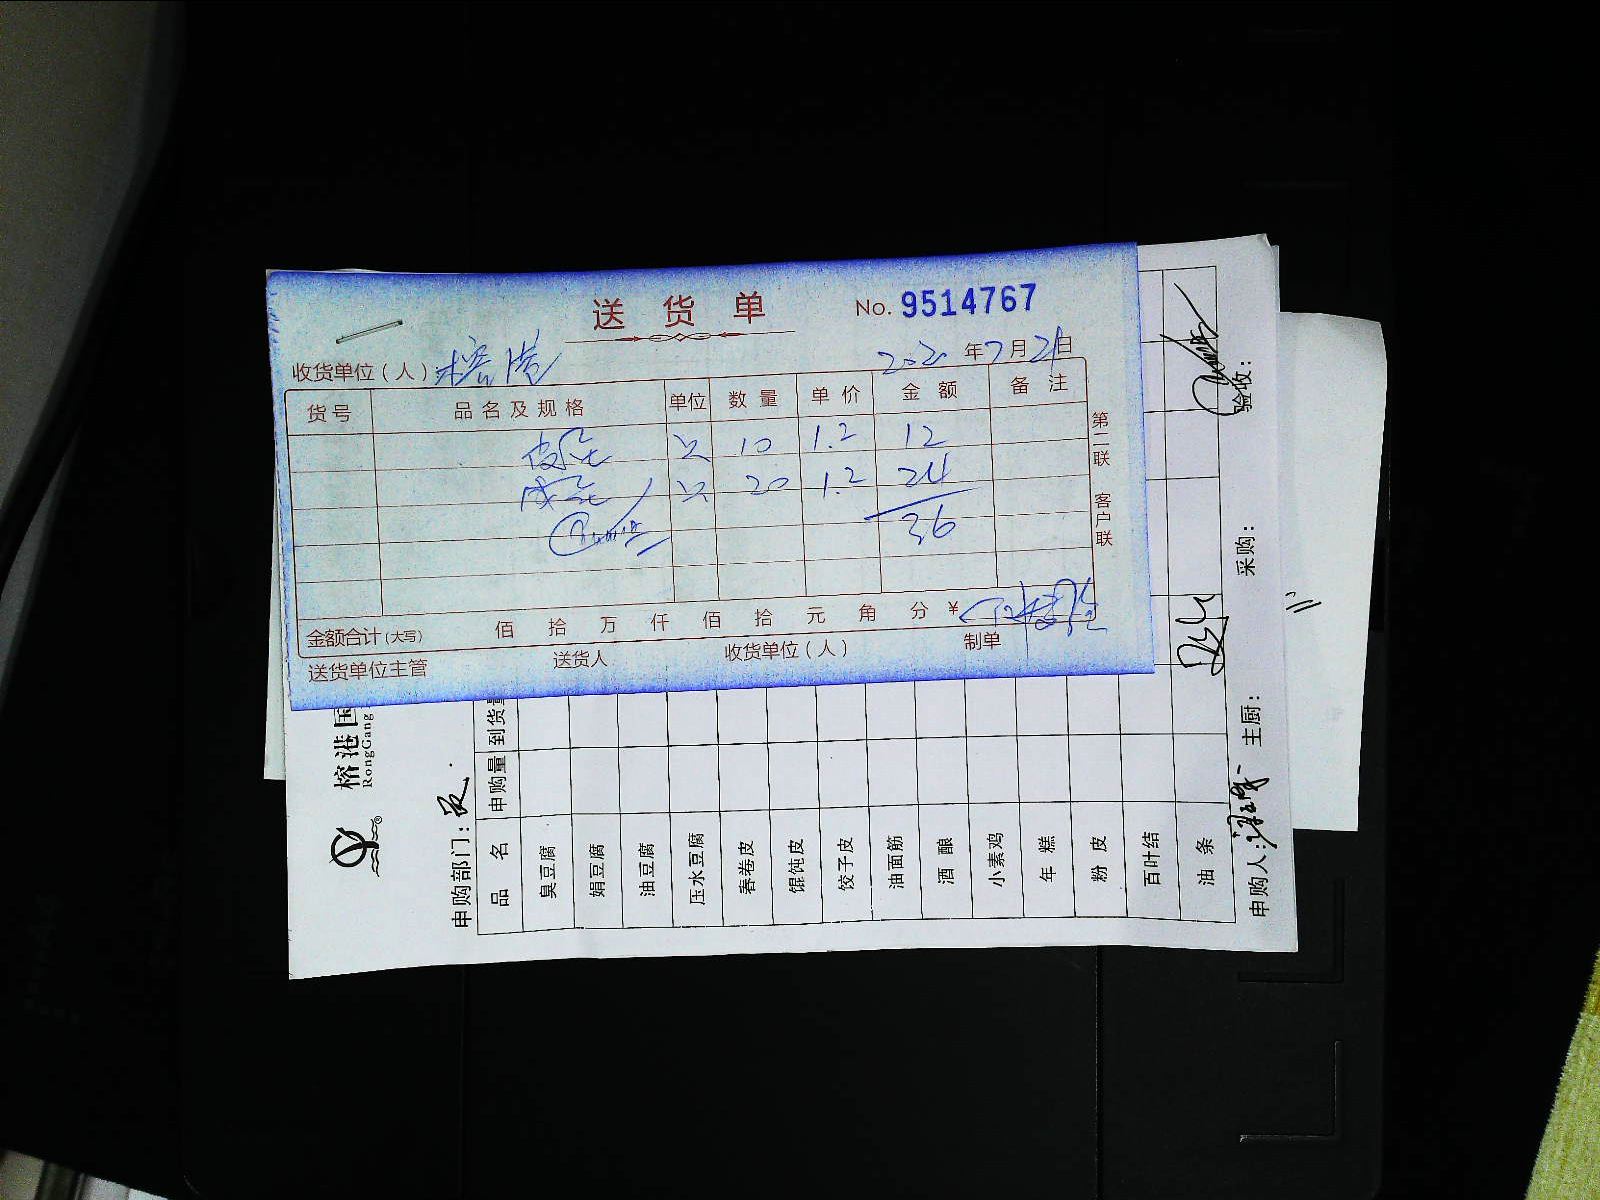 送货单 No. 9514767
收货单位（人）榕港 2020年7月21日
货号 品名及规格 单位 数量 单价 金额 备注
皮蛋 只 10 1.2 12
咸蛋 只 20 1.2 24
36
金额合计(大写) 佰 拾 万 仟 佰 拾 元 角 分 ¥
送货单位主管 送货人 收货单位（人） 制单
第二联 客户联
榕港国
RongGang
申购部门：
品名 申购量 到货量
臭豆腐
娟豆腐
油豆腐
压水豆腐
春卷皮
馄饨皮
饺子皮
油面筋
酒酿
小素鸡
年糕
粉皮
百叶结
油条
申购人： 主厨： 采购： 验收：